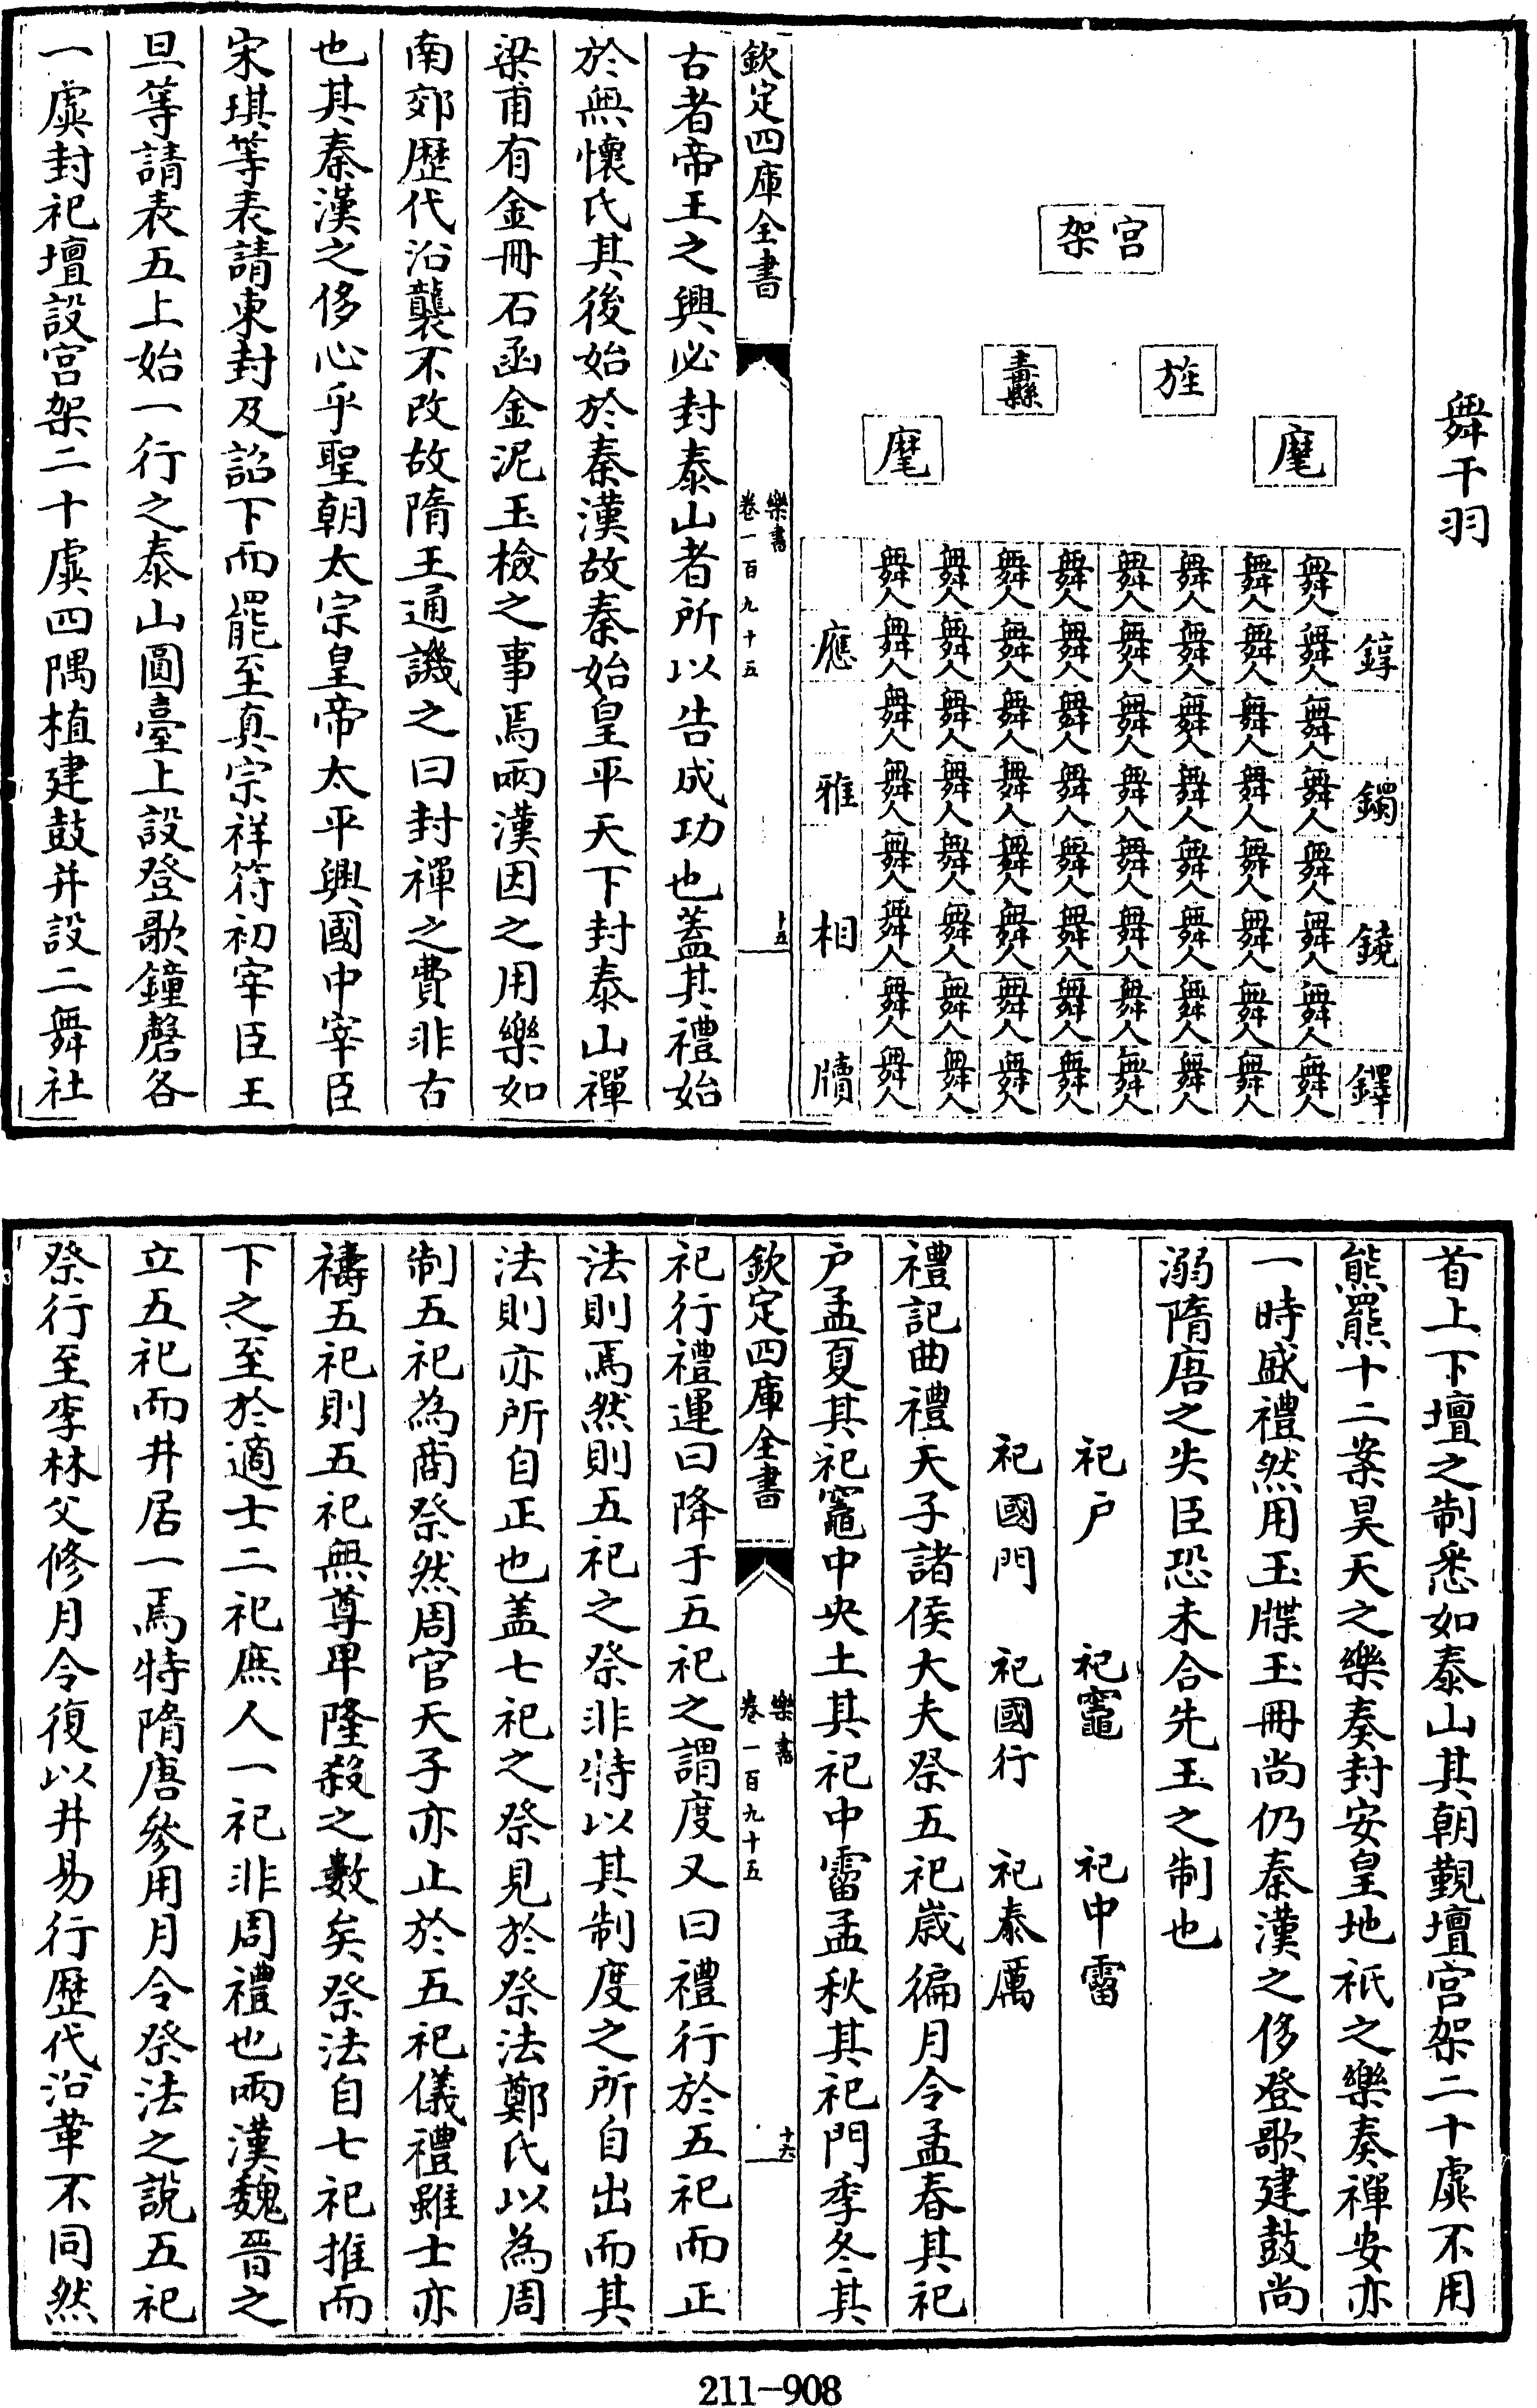 舞干羽
宫架
旌　纛
麾　麾
舞人舞人舞人舞人舞人舞人舞人舞人
錞　舞人舞人舞人舞人舞人舞人舞人舞人　應
舞人舞人舞人舞人舞人舞人舞人舞人
鐲　舞人舞人舞人舞人舞人舞人舞人舞人　雅
舞人舞人舞人舞人舞人舞人舞人舞人
鐃　舞人舞人舞人舞人舞人舞人舞人舞人　相
舞人舞人舞人舞人舞人舞人舞人舞人
鐸　舞人舞人舞人舞人舞人舞人舞人舞人　牘
欽定四庫全書
樂書
卷一百九十五
十五
古者帝王之興必封泰山者所以告成功也蓋其禮始
於無懷氏其後始於秦漢故秦始皇平天下封泰山禪
梁甫有金冊石函金泥玉檢之事焉兩漢因之用樂如
南郊歷代沿襲不改故隋王通譏之曰封禪之費非古
也其秦漢之侈心乎聖朝太宗皇帝太平興國中宰臣
宋琪等表請東封及詔下而罷至真宗祥符初宰臣王
旦等請表五上始一行之泰山圓臺上設登歌鐘磬各
一虡封祀壇設宫架二十虡四隅植建鼓并設二舞社
首上下壇之制悉如泰山其朝覲壇宫架二十虡不用
熊羆十二案昊天之樂奏封安皇地祇之樂奏禪安亦
一時盛禮然用玉牒玉冊尚仍秦漢之侈登歌建鼓尚
溺隋唐之失臣恐未合先王之制也
祀户　祀竈　祀中霤
祀國門　祀國行　祀泰厲
禮記曲禮天子諸侯大夫祭五祀歲徧月令孟春其祀
户孟夏其祀竈中央土其祀中霤孟秋其祀門季冬其
欽定四庫全書
樂書
卷一百九十五
十六
祀行禮運曰降于五祀之謂度又曰禮行於五祀而正
法則焉然則五祀之祭非特以其制度之所自出而其
法則亦所自正也盖七祀之祭見於祭法鄭氏以為周
制五祀為商祭然周官天子亦止於五祀儀禮雖士亦
禱五祀則五祀無尊卑隆殺之數矣祭法自七祀推而
下之至於適士二祀庶人一祀非周禮也兩漢魏晉之
立五祀而井居一焉特隋唐參用月令祭法之説五祀
祭行至李林父修月令復以井易行歷代沿革不同然
211-908